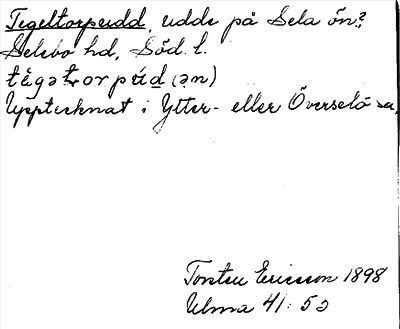 Tegeltorpudd, udde på Sela ön?
Selebo hd, Söd. l.
tégətorpúd (ən)
Upptecknat i Ytter- eller Överselö sn,
Torsten Ericsson 1898
Ulma 41:52